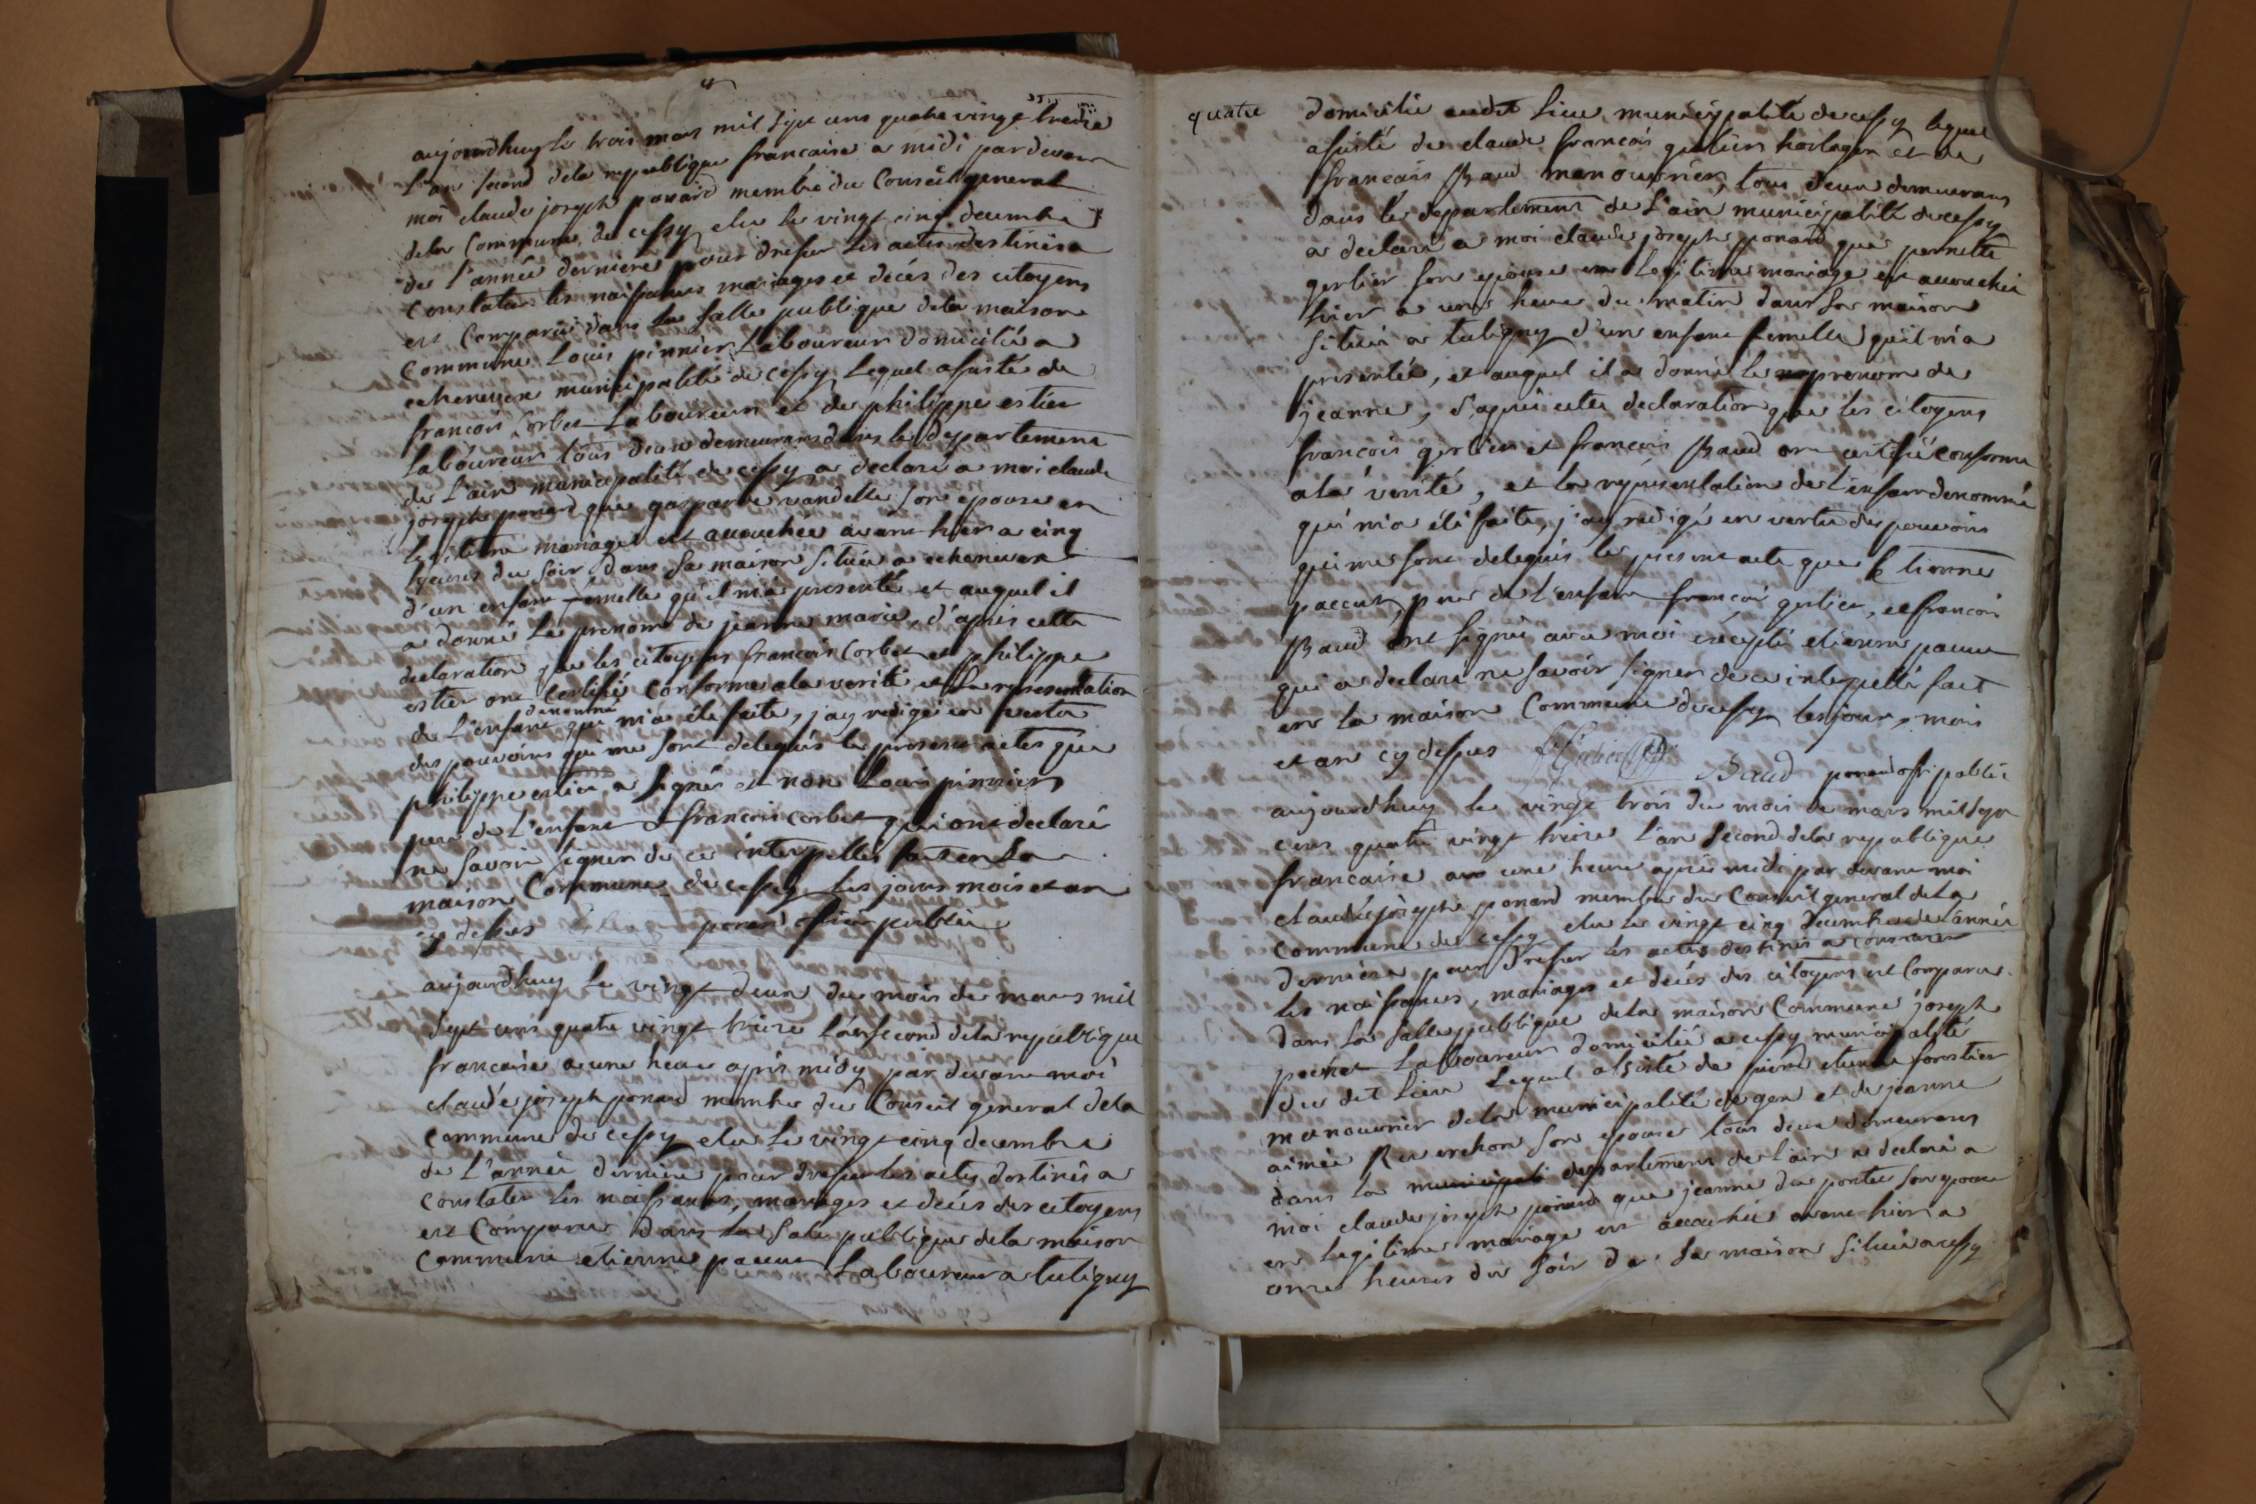 aujourdhuy le trois mars mil sept cens quatre vingt treize
L'an second dela republique francaise a midi par devant
moi claude joseph ponard membre du Conseil general
dela Commune de cessy elu le vingt cinq decembre
de l'année derniere pour dresser les actes destinés a
Constater les naissances mariages et décés des citoyens
est Comparu dans la salle publique dela maison
Commune Louis pinnier Laboureur domicilié a
echenevex municipalité de cessy Lequel assisté de
francois Corbet Laboureur et de philippe estier
Laboureur tous deux demeurans dans le departement
de L'ain municipalité de cessy a declaré a moi claude
joseph ponard que gasparde vandelle son epouse en
legitime mariage est accouchee avant hier a cinq
heures du soir dans sa maison située a echenevex
d'un enfant femelle qu'il m'a presenté et auquel il
a donné le prenom de jeanne marie, d'après cette
declaration que les citoyens francois Corbet et philippe
estier ont certifié conforme a la verité et la représentation
de L'enfant denommé qui m'a été faite, j'ay redigé en vertu
des pouvoirs qui me sont delegués le present actes que
philippe estier a signés et non Louis pinnier
pere de L'enfant et francois corbet qui ont declaré
ne savoir signer de ce interpellés fait en la
maison Commune de cessy les jours mois et an
cy dessus ponard officier public
aujourdhuy le vingt deux du mois de mars mil
sept cens quatre vingt treize l'an second dela republique
francaise a une heure après midy par devant moi
claude joseph ponard membre du Conseil general dela
Commune de cessy elu le vingt cinq decembre
de L'année derniere pour dresser les actes destinés a
Constater les naissances, mariages et décés des citoyens
est Comparu dans la salle publique dela maison
Commune etienne paccut Laboureur a tutigny
quatre
domicilié audit Lieu municipalité de cessy lequel
assisté de claude francois gerlier horloger et de
francois Baud manouvrier, tous deux demeurans
dans le departement de L'ain municipalité de cessy
a declaré a moi claude joseph ponard que pernette
gerlier son epouse en Legitime mariage est accouchée
hier a une heure du matin dans sa maison
située a tutigny d'un enfant femelle qu'il m'a
presentée, et auquel il a donné le prenom de
jeanne, d'après cette declaration que les citoyens
francois gerlier et francois Baud ont certifié conforme
a la verité, et la représentation de L'enfant denommé
qui m'a été faite, j'ay redigé en vertu des pouvoirs
qui me sont delegués le present acte que Etienne
paccut, pere de L'enfant francois gerlier, et francois
Baud ont signés avec moi excepté etienne paccut
qui a declaré ne savoir signer de ce interpellé fait
en la maison Commune de cessy les jour, mois
et an cy dessus Baud ponard off. public
aujourdhuy le vingt trois du mois de mars mil sept
cens quatre vingt treize l'an second dela republique
francaise a une heure après midi par devant moi
claude joseph ponard membre du Conseil general de La
Commune de cessy elu le vingt cinq decembre de L'année
derniere pour dresser les actes destinés a constater
les naissances, mariages et décés des citoyens est Comparu
dans la salle publique dela maison Commune joseph
pochet Laboureur domicilié a cessy municipalité
du dit Lieu Lequel assisté de pierre etienne forestier
manouvrier dela municipalité de gex et de jeanne
aimée Reverchon son epouse tous deux demeurans
dans le departement de L'ain a declaré a
moi claude joseph ponard que jeanne du pontet son epouse
en legitime mariage est accouchée avant hier a
onze heures du soir de sa maison située a cessy